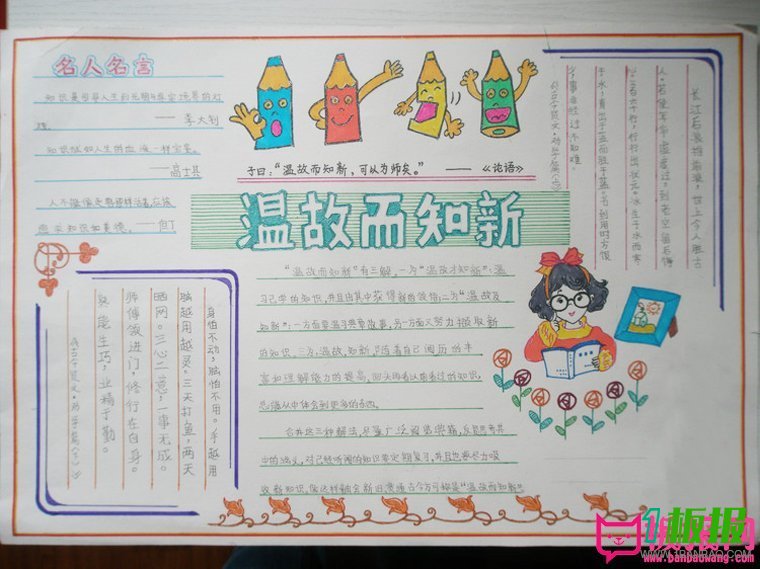 名人名言
知识是引导人生到光明与真实境界的灯
烛。 —— 李大钊
—— 高士其
人不能像走兽那样活着，应该
追求知识和美德。 —— 但丁
子曰：“温故而知新，可以为师矣。” —— 《论语》
温故而知新
“温故而知新”有三解，一为“温故才知新”：温
习已学的知识，并且由其中获得新的领悟；二为“温故及
知新”：一方面要温习典章故事，另一方面又努力撷取新
的知识。三为，温故，知新。随着自己阅历的丰
富和理解能力的提高，回头再看以前看过的知识，
总能从中体会到更多的东西。
合并这三种解法，尽量广泛阅览典籍，反复思考其
中的涵义，对已经听闻的知识要定期复习，并且也要尽力吸
收新知识，
“温故而知新”
长江后浪推前浪，世上今人胜古
人。若使年华虚度过，到老空留后悔
心。
冰生于水而寒
于水，青出于蓝而胜于蓝。书到用时方恨
少，事非经过不知难。
身怕不动，脑怕不用。手越用
脑越用越灵。三天打鱼，两天
晒网。三心二意，一事无成。
师傅领进门，修行在自身。
熟能生巧，业精于勤。
板报网
WWW.1BANBAO.COM
www.banbaowang.com